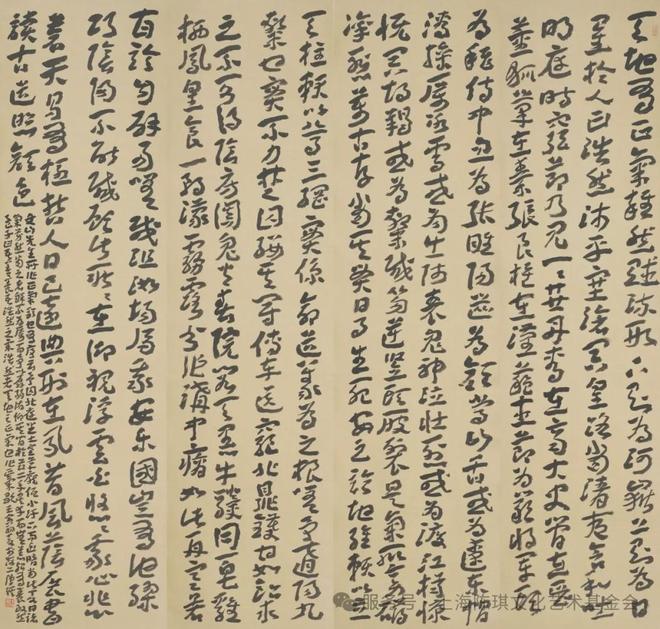 天地有正氣雜然賦流形下則為河嶽上則為日
星於人曰浩然沛乎塞蒼冥皇路當清夷含和吐
明庭時窮節乃見一一垂丹青在齊太史簡在晉
董狐筆在秦張良椎在漢蘇武節為嚴將軍頭
為嵇侍中血為張睢陽齒為顏常山舌或為遼東帽
清操厲冰雪或為出師表鬼神泣壯烈或為渡江楫慷
慨吞胡羯或為擊賊笏逆豎頭破裂是氣所旁礴
凜烈萬古存當其貫日月生死安足論地維賴以立
天柱賴以尊三綱實係命道義為之根嗟予遘陽九
隸也實不力楚囚纓其冠傳車送窮北鼎鑊甘如飴求
之不可得陰房闃鬼火春院閟天黑牛驥同一皂雞
栖鳳皇食一朝濛霧露分作溝中瘠如此再寒暑
百沴自辟易嗟哉沮洳場為我安樂國豈有他繆
巧陰陽不能賊顧此耿耿在仰視浮雲白悠悠我心悲
蒼天曷有極哲人日已遠典刑在夙昔風簷展書
讀古道照顏色
服务号 · 上海 琪文化艺术基金会